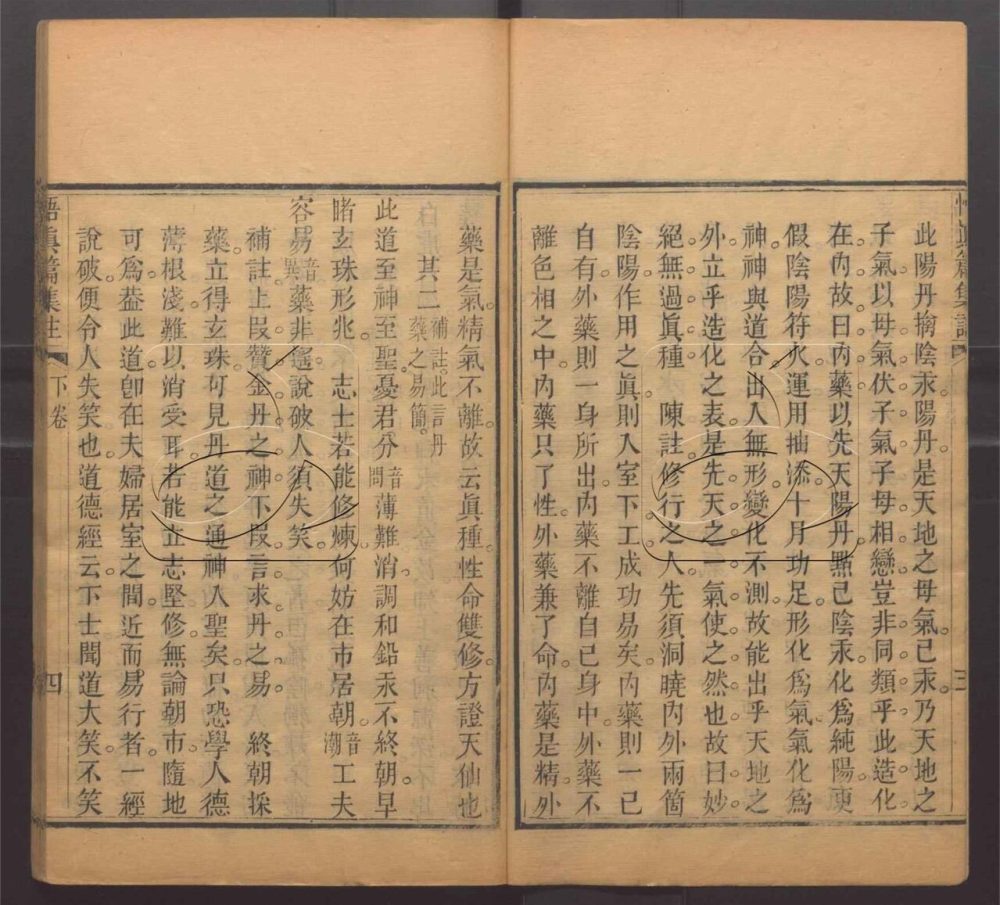 悟眞篇集註
此陽丹擒陰汞。陽丹。是天地之母氣。己汞。乃天地之
子氣。以母氣伏子氣。子母相戀。豈非同類乎。此造化
在內。故曰內藥。以先天陽丹。點己陰汞。化爲純陽。更
假陰陽符火。運用抽添。十月功足。形化爲氣。氣化爲
神。神與道合。出入無形。變化不測。故能出乎天地之
外。立乎造化之表。是先天之一氣使之然也。故曰妙
絕無過眞種。　陳註。修行之人。先須洞曉內外兩箇
陰陽作用之眞。則入室下工。成功易矣。內藥則一己
自有。外藥則一身所出。內藥不離自己身中。外藥不
離色相之中。內藥只了性。外藥兼了命。內藥是精。外
三
藥是氣。精氣不離。故云眞種。性命雙修。方證天仙也
其二　補註。此言丹藥之易簡。
此道至神至聖。憂君分音問薄難消。調和鉛汞不終朝。早
睹玄珠形兆。　志士若能修煉。何妨在市居朝音潮。工夫
容易音異藥非遙。說破人須失笑。
補註。上段贊金丹之神。下段言求丹之易。　終朝採
藥。立得玄珠。可見丹道之通神入聖矣。只恐學人德
薄根淺。難以消受耳。若能立志堅修。無論朝市。隨地
可爲。葢此道卽在夫婦居室之間。近而易行者。一經
說破。便令人失笑也。道德經云。下士聞道大笑。不笑
悟眞篇集註
下卷
四